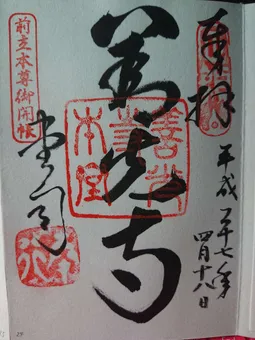 奉拝
平成二十七年
四月十八日
善光寺
本堂
堂司
前立本尊御開帳